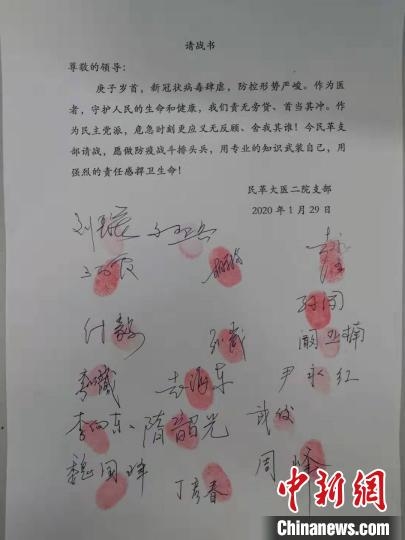 请战书
尊敬的领导：
庚子岁首，新冠状病毒肆虐，防控形势严峻。作为医
者，守护人民的生命和健康，我们责无旁贷、首当其冲。作
为民主党派，危急时刻更应义无反顾、舍我其谁！今民革支
部请战，愿做防疫战斗排头兵，用专业的知识武装自己，用
强烈的责任感捍卫生命！
民革大医二院支部
2020年1月29日
付毅
李曦东
尹永红
李向东、隋韶光
魏国峰
丁彦春
周峰
中新网
WWW.CHINANEWS.COM